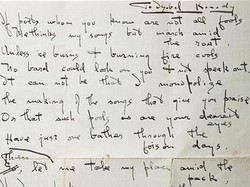 To Isobel
If poets whom you know are not all fools
Methinks my songs but march amid
the rout
Unless ice burns & burning fire cools
No bard could look on you & not speak out
It can not be that I monopolize
the making of the songs that give you praise
On that such pools as are your dearest
eyes
Have just one bather through the
foison days.
Then let me take my place amid the
pack